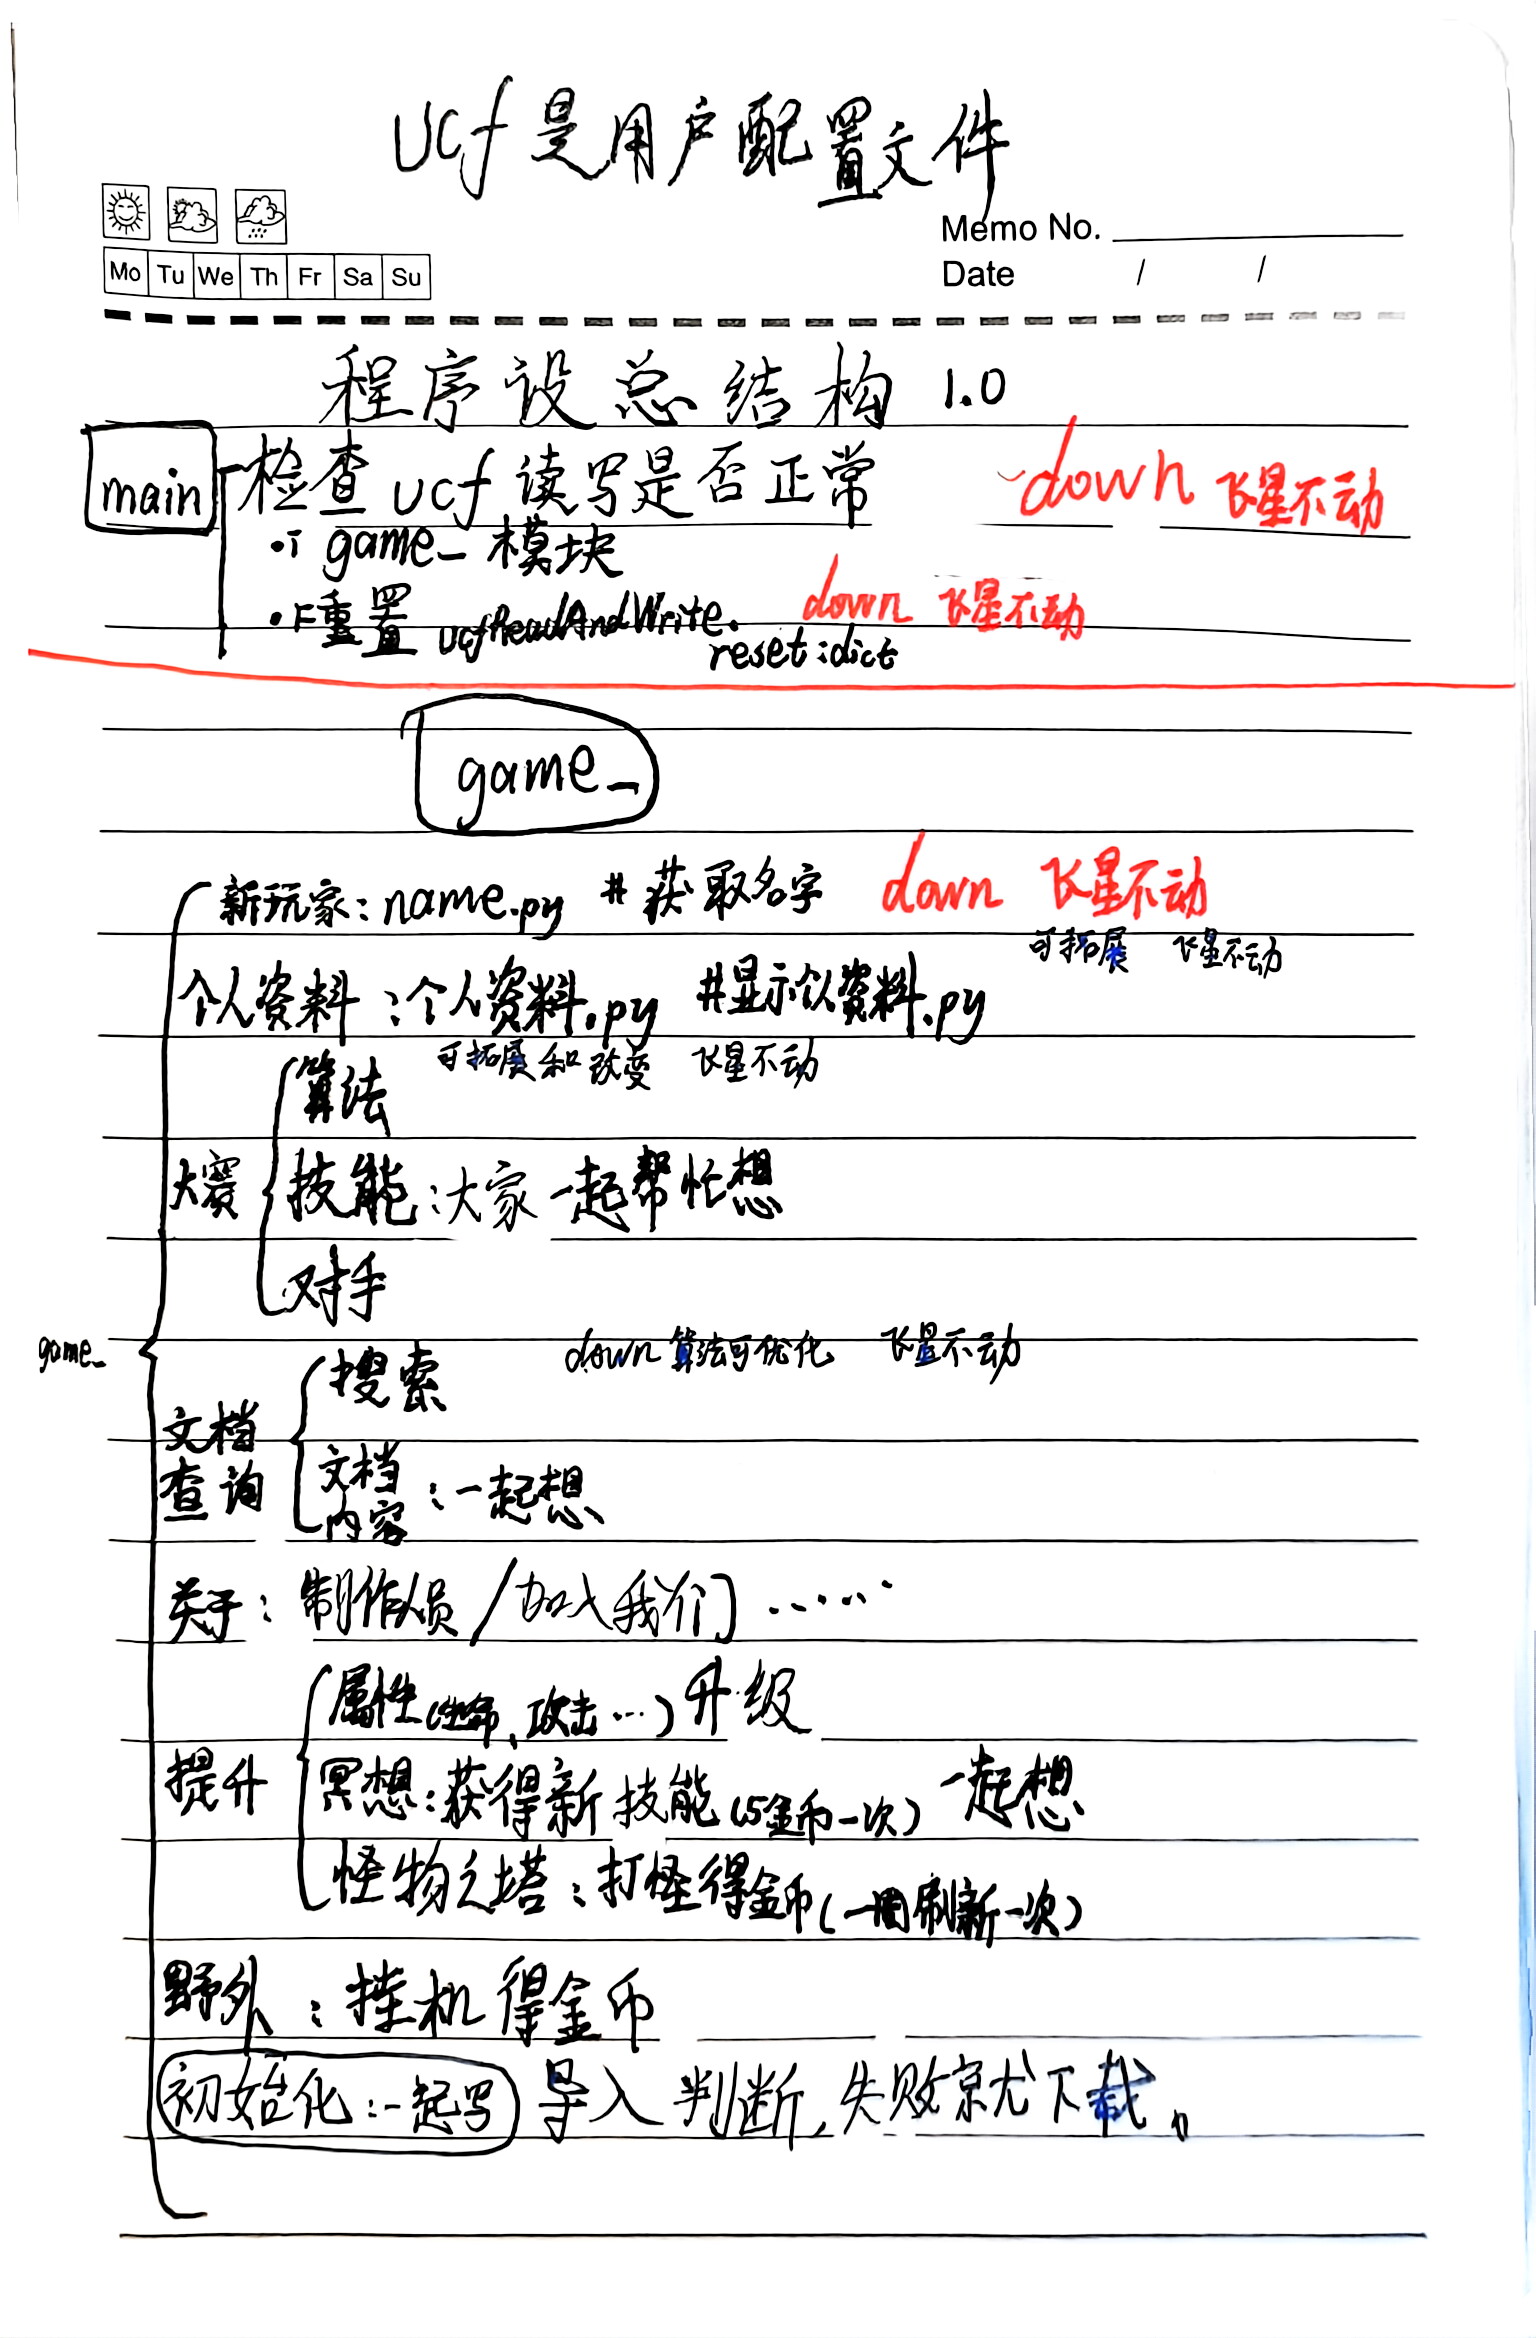 ucf是用户配置文件
Memo No.
Mo Tu We Th Fr Sa Su
Date / /
程序设总结构 1.0
main 检查ucf读写是否正常 down 飞星不动
·T game_模块
·F重置 ucfReadAndWrite. down 飞星不动
reset:dict
game_
新玩家:name.py #获取名字 down 飞星不动
可拓展 飞星不动
个人资料:个人资料.py #显示个人资料.py
可拓展和改变 飞星不动
算法
大赛 技能:大家一起帮忙想
对手
game_
down 算法可优化 飞星不动
搜索
文档查询
文档内容:一起想
关于:制作人员/加入我们……
属性(生命、攻击…)升级
提升 冥想:获得新技能(5金币一次) 一起想
怪物之塔:打怪得金币(一周刷新一次)
野外:挂机得金币
初始化:一起写 导入判断,失败就下载。